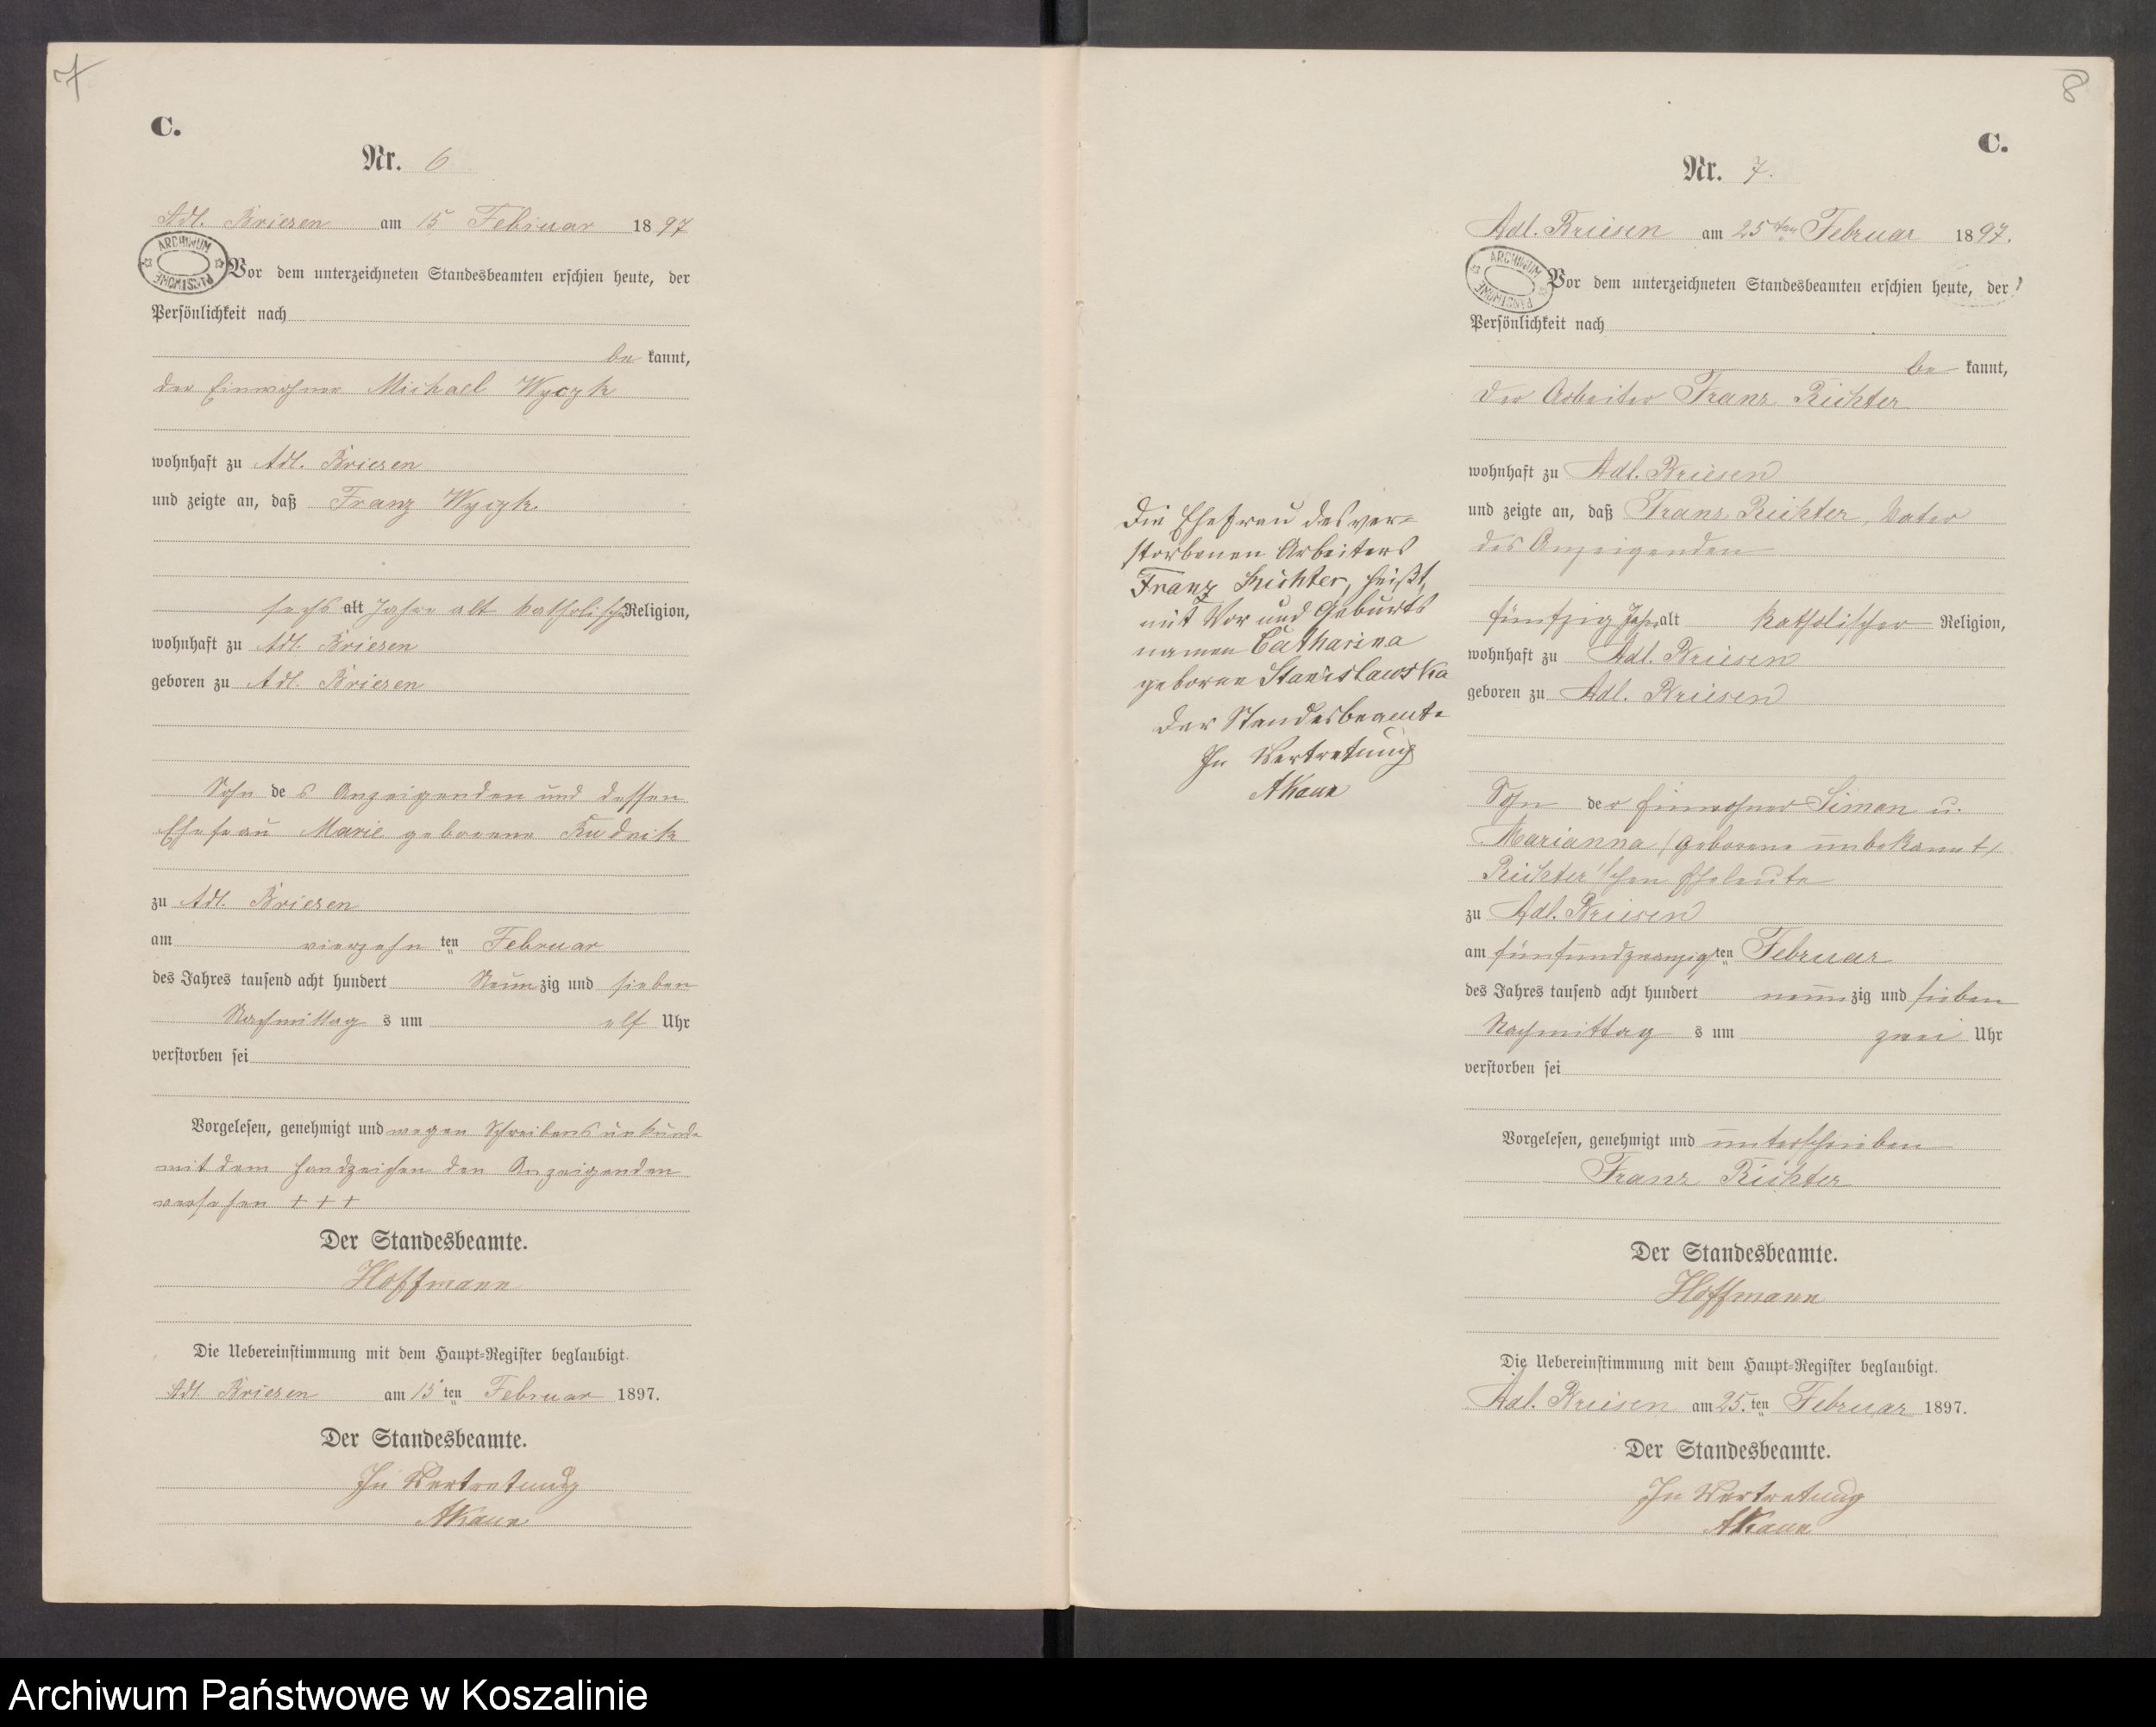 7
C.
Nr. 6
Adl. Briesen am 15 Februar 1897
ARCHIWUM PAŃSTWOWE
Vor dem unterzeichneten Standesbeamten erschien heute, der
Persönlichkeit nach
be kannt,
der Einwohner Michael Wyczk
wohnhaft zu Adl. Briesen
und zeigte an, daß Franz Wyczk
sechs alt Jahre alt katholisch Religion,
wohnhaft zu Adl. Briesen
geboren zu Adl. Briesen
Sohn des Anzeigenden und dessen
Ehefrau Marie geborene Kudrik
zu Adl. Briesen
am vierzehn ten Februar
des Jahres tausend acht hundert Neun zig und sieben
Nachmittag s um elf Uhr
verstorben sei
Vorgelesen, genehmigt und wegen Schreibensunkunde
mit dem Handzeichen den Anzeigenden
versehen + + +
Der Standesbeamte.
Hoffmann
Die Uebereinstimmung mit dem Haupt-Register beglaubigt.
Adl. Briesen am 15 ten Februar 1897.
Der Standesbeamte.
In Vertretung
AKaun
8
C.
Nr. 7.
Adl. Briesen am 25ten Februar 1897.
ARCHIWUM PAŃSTWOWE
Vor dem unterzeichneten Standesbeamten erschien heute, der
Persönlichkeit nach
be kannt,
der Arbeiter Franz Richter
wohnhaft zu Adl. Briesen
und zeigte an, daß Franz Richter, Vater
des Anzeigenden
fünfzig Jahr alt katholischer Religion,
wohnhaft zu Adl. Briesen
geboren zu Adl. Briesen
Sohn der Einwohner Simon u.
Marianna (geborene unbekannt)
Richter'schen Eheleute
zu Adl. Briesen
am fünfundzwanzigsten Februar
des Jahres tausend acht hundert neun zig und sieben
Nachmittag s um zwei Uhr
verstorben sei
Vorgelesen, genehmigt und unterschrieben
Franz Richter
Der Standesbeamte.
Hoffmann
Die Uebereinstimmung mit dem Haupt-Register beglaubigt.
Adl. Briesen am 25. ten Februar 1897.
Der Standesbeamte.
In Vertretung
AKaun
Die Ehefrau des ver-
storbenen Arbeiters
Franz Richter, heißt,
mit Vor und Geburts
namen Catharina
geborne Stanislawska
Der Standesbeamte
In Vertretung
AKaun
Archiwum Państwowe w Koszalinie